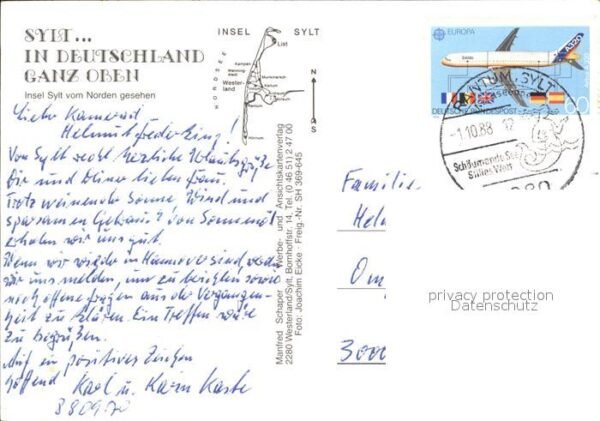 SYLT...
IN DEUTSCHLAND
GANZ OBEN
Insel Sylt vom Norden gesehen
INSEL SYLT
NORDSEE
List
Kampen
Wester-
land
N
S
Lieber Kamerad
Helmut
Von Sylt recht herzliche Urlaubsgrüße
Dir und Deiner lieben Frau.
Trotz weinender Sonne, Wind und
sparsamen Gebrauch von Sonnenöl
erholen wir uns gut.
Wenn wir wieder in Hannover sind, werden
wir uns melden, um zu berichten sowie
noch offene Fragen aus der Vergangen-
heit zu klären. Ein Treffen wäre
zu begrüßen.
Auf ein positives Zeichen
hoffend Karl u. Karin
880970
Manfred Schaper · Werbe- und Ansichtskartenverlag
2280 Westerland/Sylt, Bomhoffstr. 14, Tel. (0 46 51) 2 47 00
Foto: Joachim Eicke · Freig.-Nr. SH 369-645
EUROPA
A320
60
DEUTSCHE BUNDESPOST
SYLT
-1.10.88 12
Schäumende See
280
Familie
Hel
Om
3000
privacy protection
Datenschutz